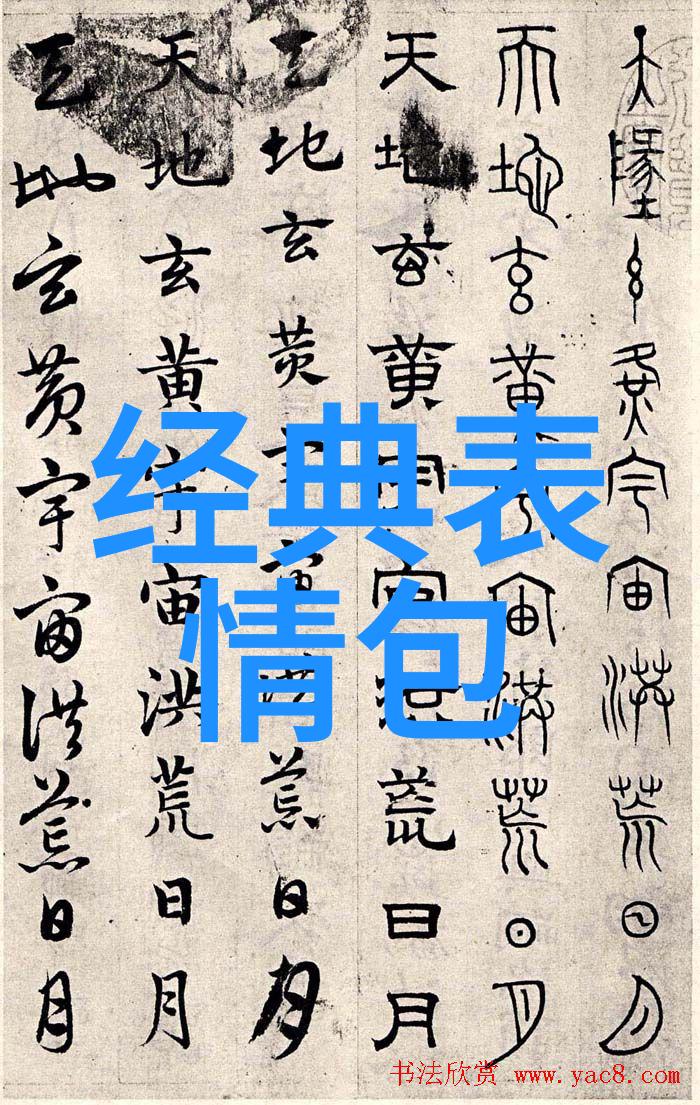 天墬玄黃宇宙洪荒日月
天地玄黃宇宙洪荒日月
天地玄黃宇宙洪荒日月
天地玄黃宇宙洪荒日月
天地玄黄宇宙洪荒日月
天地玄黃宇宙洪荒日月
经典表
情包
书法欣赏 www.yac8.com